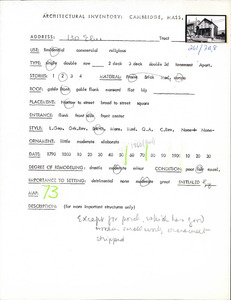 ARCHITECTURAL INVENTORY: CAMBRIDGE, MASS.
ADDRESS: 130 Tract
USE: Residential commercial religious
TYPE: single double row 2 deck 3 deck double 3d tenement Apart.
STORIES: 1 2 3 4 MATERIAL: frame Brick
ROOF: gable flank gable flank mansard flat hip
PLACEMENT: Narrow to street broad to street square
ENTRANCE: flank front side front center
STYLE:
ORNAMENT: little moderate elaborate
DATE: 1790 1800 10 20 30 40 50 60 70 80 90 1900 10 20 30
DEGREE OF REMODELING: drastic moderate minor CONDITION: poor fair good
IMPORTANCE TO SETTING: detrimental none moderate great INITIALED
MAP: 73
DESCRIPTION: (for more important structures only)
Except for porch, which has good
stripped